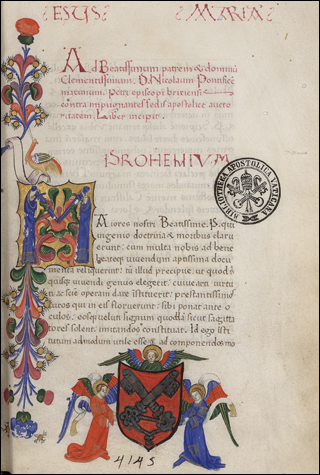 IESUS MARIA
Ad Beatissimum patrem & dominū
Clementissimum. D. Nicolaum Pontificē
maximum. Petri episcopi brixiensis
contra impugnantes sedis apostolice aucto
ritatem. Liber incipit.
PROHEMIVM
BIBLIOTHECA APOSTOLICA VATICANA
Maiores nostri Beatissime. P. qui
ingenio doctrina & moribus claru
erunt: cum multa nobis ad bene
beateqz vivendum aptissima docu
menta reliquerint: tū illud precipue ut quod
quisqz vivendi genus elegerit. cuius
ac sue operam dare instituerit: prestantissimos
viros qui in eis floruerunt: sibi ponat ante o
culos: eosqz velut signum quoddā sicut sagitta
tores solent. imitandos constituat. Id ego isti
tutum admodum utile esse & ad componendos mo
4145